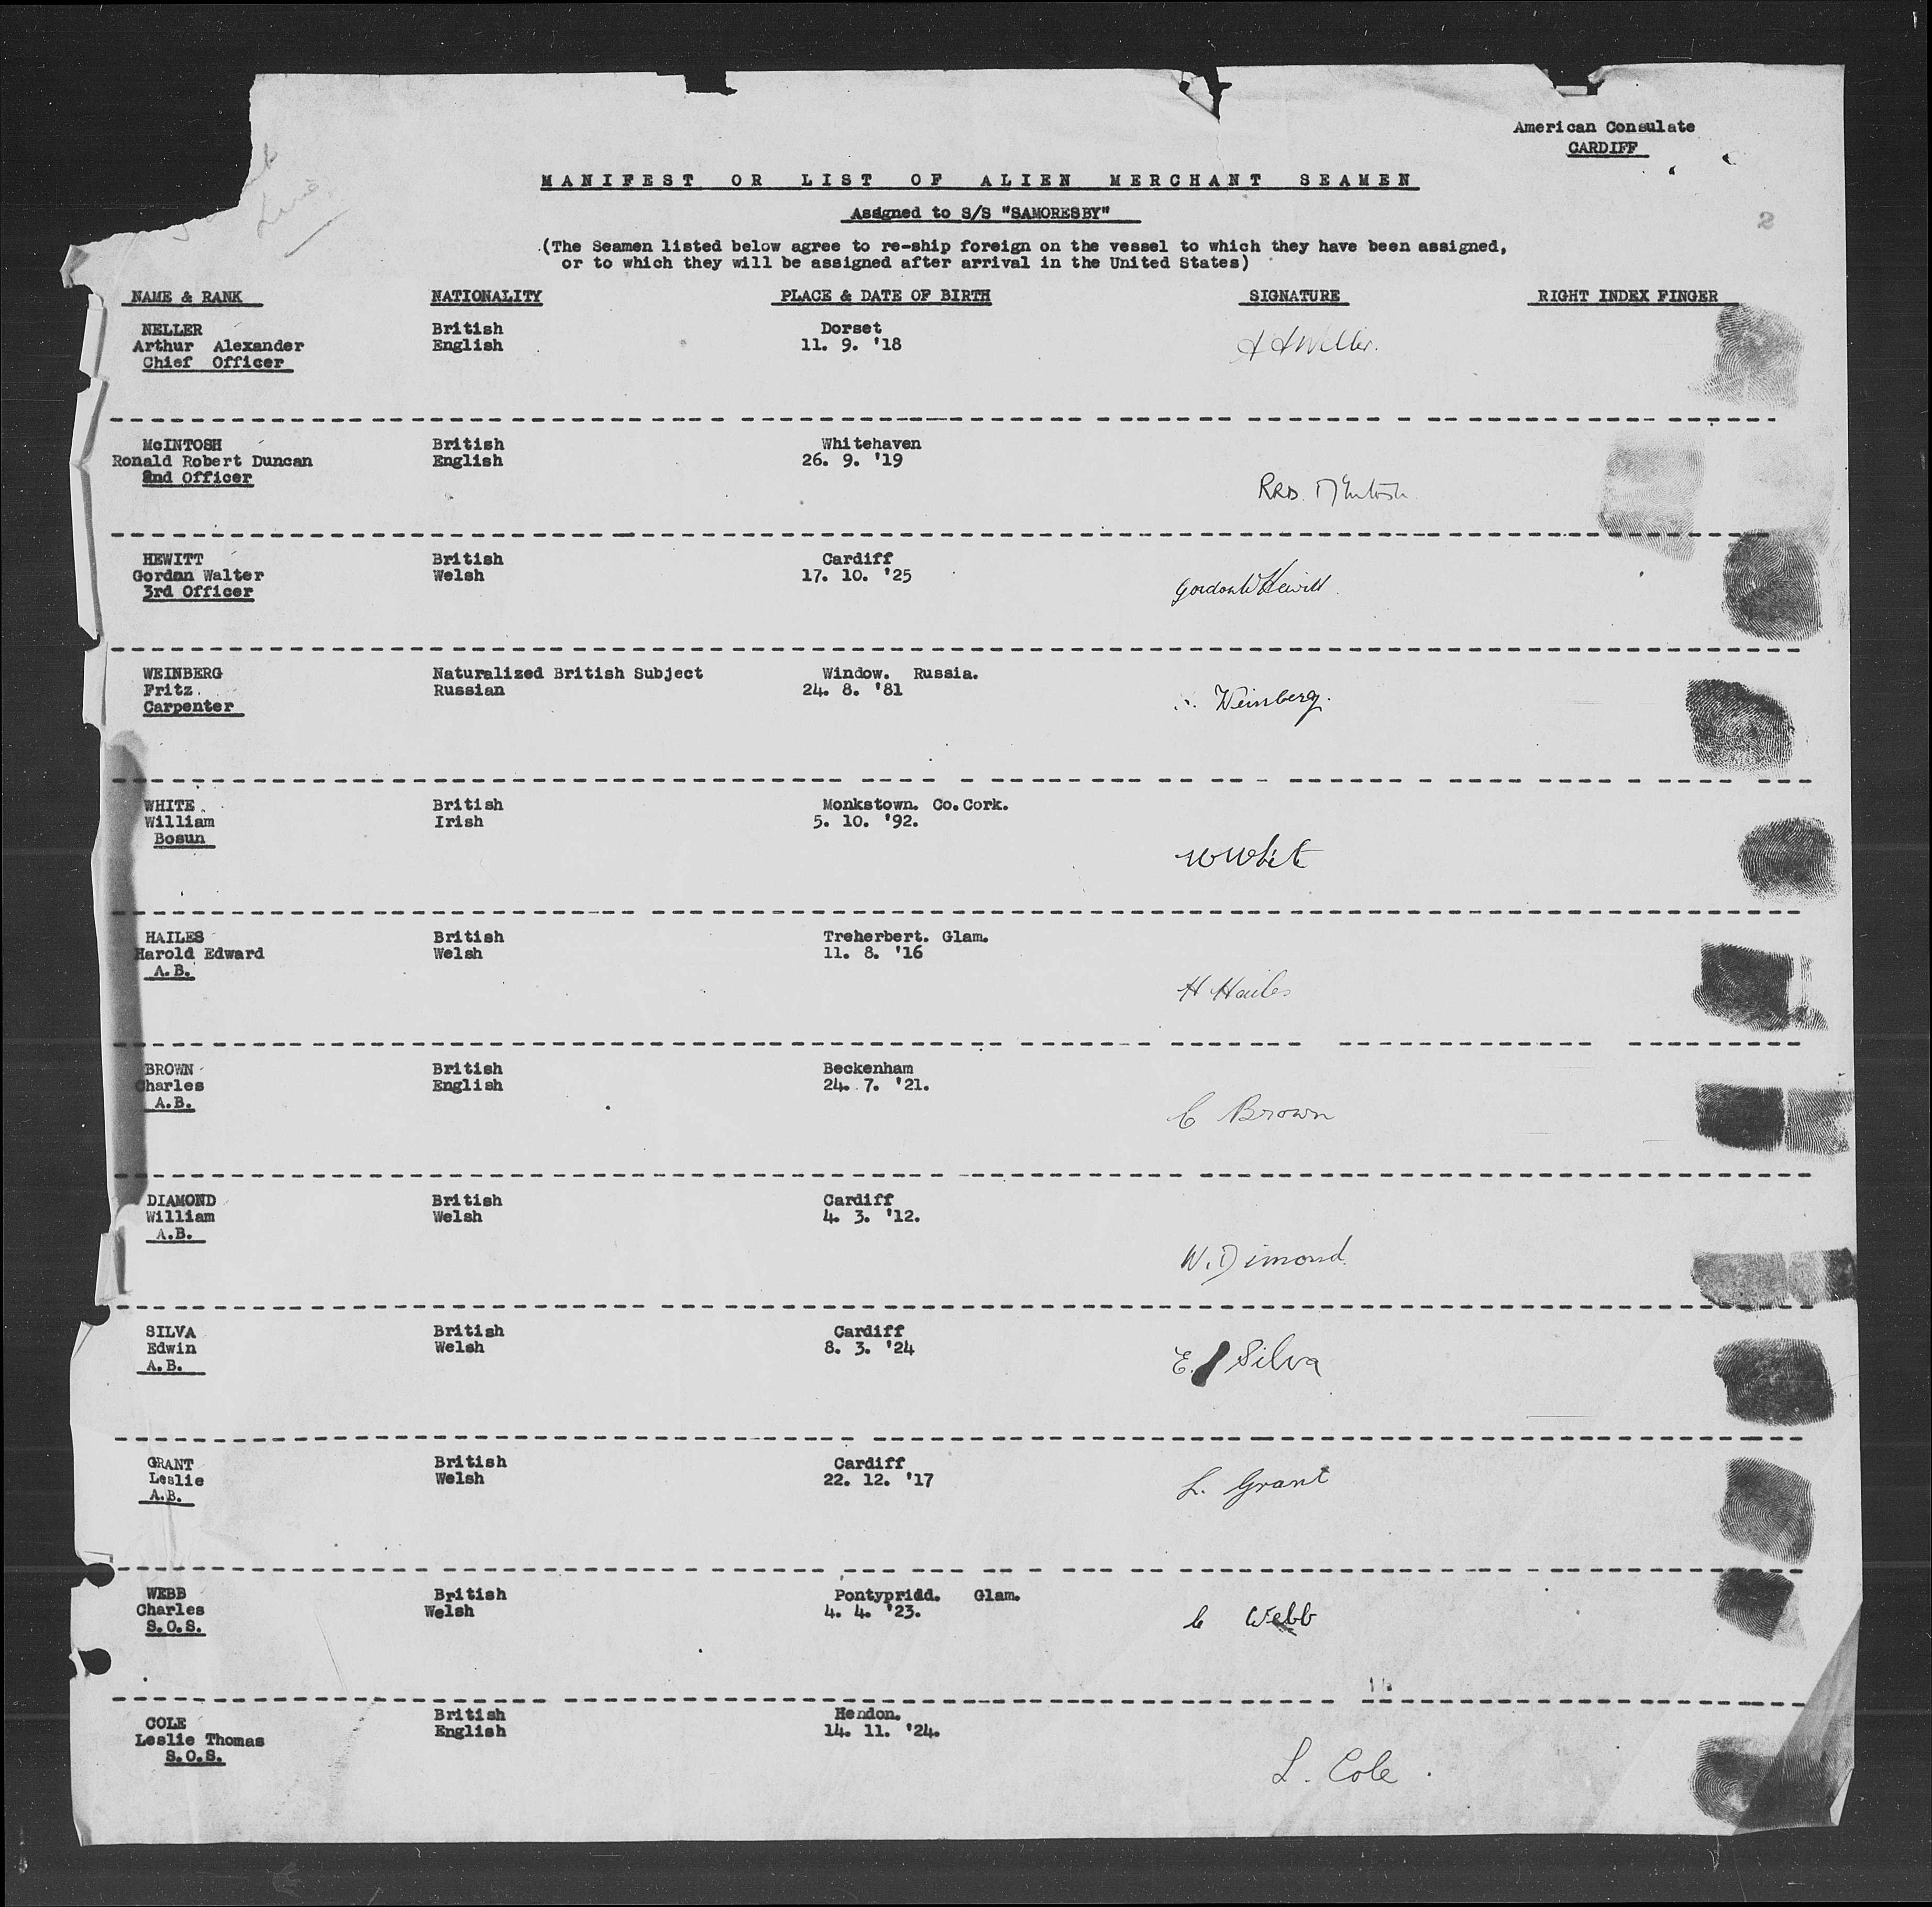 American Consulate
CARDIFF
MANIFEST OR LIST OF ALIEN MERCHANT SEAMEN
Assigned to S/S "SAMORESBY"
2
(The Seamen listed below agree to re-ship foreign on the vessel to which they have been assigned,
or to which they will be assigned after arrival in the United States)
NAME & RANK NATIONALITY PLACE & DATE OF BIRTH SIGNATURE RIGHT INDEX FINGER
NELLER British Dorset
Arthur Alexander English 11. 9. '18 A A Neller.
Chief Officer
McINTOSH British Whitehaven
Ronald Robert Duncan English 26. 9. '19
2nd Officer RRD. McIntosh
HEWITT British Cardiff
Gordon Walter Welsh 17. 10. '25
3rd Officer Gordon W Hewitt.
WEINBERG Naturalized British Subject Window. Russia.
Fritz. Russian 24. 8. '81 Weinberg.
Carpenter
WHITE. British Monkstown. Co.Cork.
William Irish 5. 10. '92.
Bosun W White
HAILES British Treherbert. Glam.
Harold Edward Welsh 11. 8. '16
A.B. H Hailes
BROWN British Beckenham
Charles English 24. 7. '21.
A.B. C Brown
DIAMOND British Cardiff
William Welsh 4. 3. '12.
A.B. W. Dimond.
SILVA British Cardiff
Edwin Welsh 8. 3. '24 E. Silva
A.B.
GRANT British Cardiff
Leslie Welsh 22. 12. '17 L. Grant
A.B.
WEBB British Pontypridd. Glam.
Charles Welsh 4. 4. '23. C Webb
S.O.S.
COLE British Hendon.
Leslie Thomas English 14. 11. '24.
S.O.S. L. Cole.